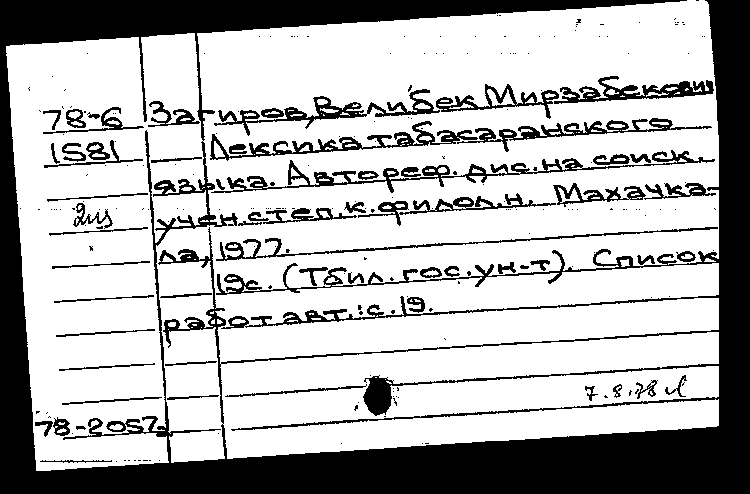 78-6 Загиров, Велибек Мирзабекович
1581 Лексика табасаранского
языка. Автореф. дис. на соиск.
2из учен. степ. к. филол. н. Махачка-
ла, 1977.
19с. (Тбил. гос. ун-т). Список
работ авт.: с. 19.
7.8.78
78-2057